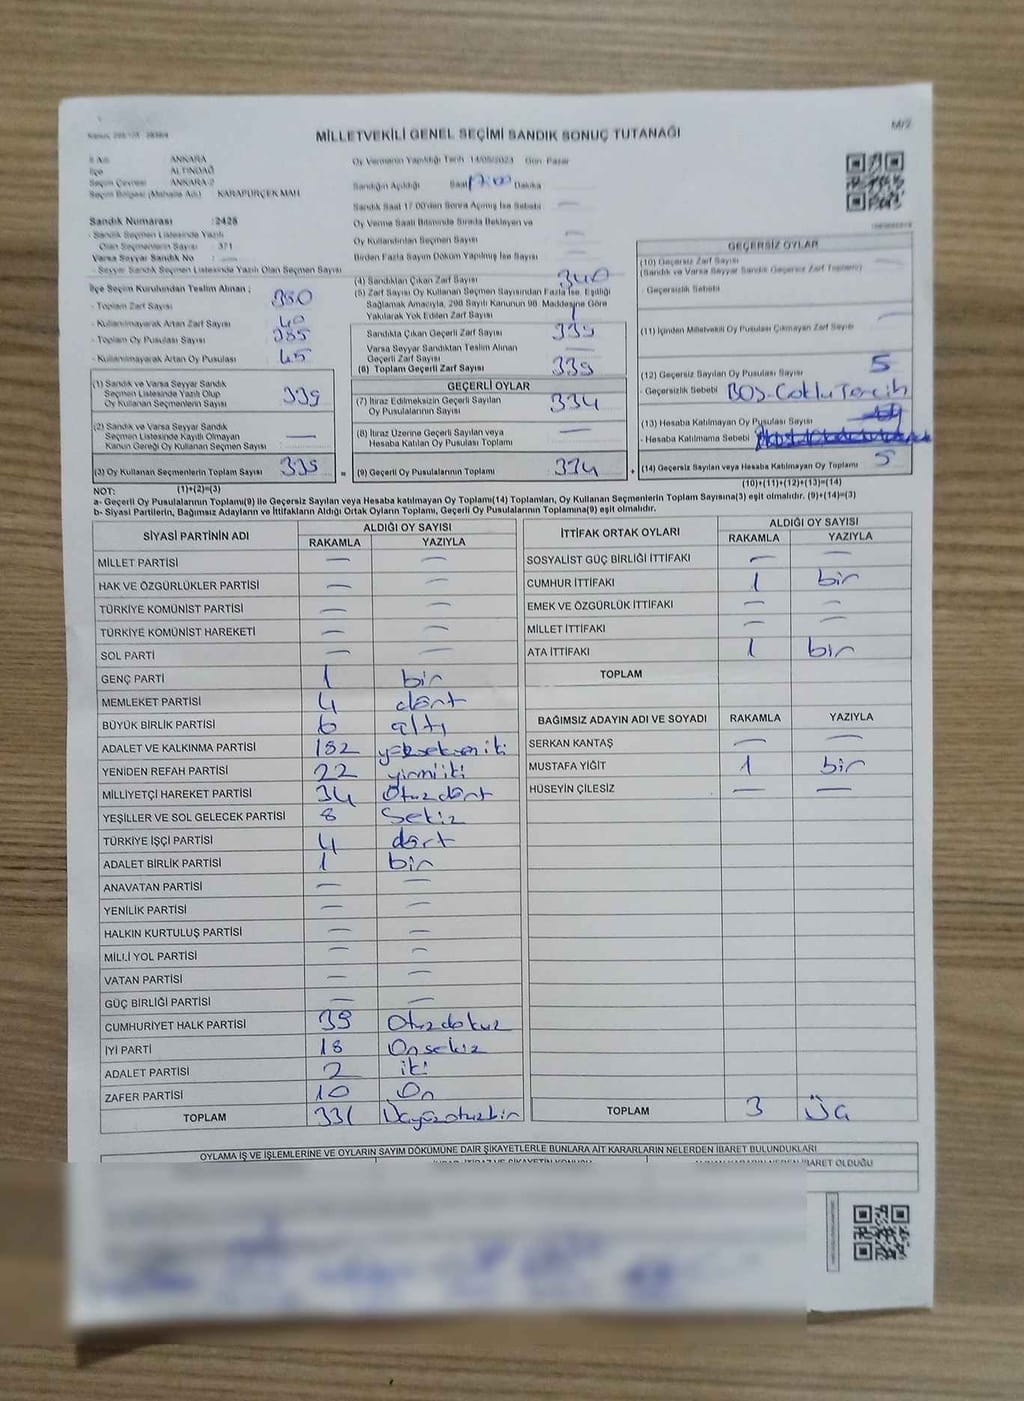 MİLLETVEKİLİ GENEL SEÇİMİ SANDIK SONUÇ TUTANAĞI
M/2
İl Adı ANKARA
İlçe ALTINDAĞ
Seçim Çevresi ANKARA-2
Seçim Bölgesi (Mahalle Adı) KARAPÜRÇEK MAH
Sandık Numarası : 2428
- Sandık Seçmen Listesinde Yazılı
Olan Seçmenlerin Sayısı : 371
Varsa Seyyar Sandık No :
- Seyyar Sandık Seçmen Listesinde Yazılı Olan Seçmen Sayısı
İlçe Seçim Kurulundan Teslim Alınan ;
- Toplam Zarf Sayısı 380
- Kullanılmayarak Artan Zarf Sayısı 40
- Toplam Oy Pusulası Sayısı 385
- Kullanılmayarak Artan Oy Pusulası 45
(1) Sandık ve Varsa Seyyar Sandık
Seçmen Listesinde Yazılı Olup
Oy Kullanan Seçmenlerin Sayısı 339
(2) Sandık ve Varsa Seyyar Sandık
Seçmen Listesinde Kayıtlı Olmayan
Kanun Gereği Oy Kullanan Seçmen Sayısı : —
(3) Oy Kullanan Seçmenlerin Toplam Sayısı 339 =
(1)+(2)=(3)
Oy Vermenin Yapıldığı Tarih 14/05/2023 Gün Pazar
Sandığın Açıldığı Saat 17:00 Dakika
Sandık Saat 17.00'den Sonra Açılmış İse Sebebi —
Oy Verme Saati Bitiminde Sırada Bekleyen ve
Oy Kullandırılan Seçmen Sayısı —
Birden Fazla Sayım Döküm Yapılmış İse Sayısı —
(4) Sandıktan Çıkan Zarf Sayısı 340
(5) Zarf Sayısı Oy Kullanan Seçmen Sayısından Fazla İse, Eşitliği
Sağlamak Amacıyla, 298 Sayılı Kanunun 98. Maddesine Göre
Yakılarak Yok Edilen Zarf Sayısı 1
Sandıkta Çıkan Geçerli Zarf Sayısı 339
Varsa Seyyar Sandıktan Teslim Alınan
Geçerli Zarf Sayısı
(6) Toplam Geçerli Zarf Sayısı 339
GEÇERLİ OYLAR
(7) İtiraz Edilmeksizin Geçerli Sayılan
Oy Pusulalarının Sayısı 334
(8) İtiraz Üzerine Geçerli Sayılan veya
Hesaba Katılan Oy Pusulası Toplamı —
(9) Geçerli Oy Pusulalarının Toplamı 334 +
GEÇERSİZ OYLAR
(10) Geçersiz Zarf Sayısı
(Sandık ve Varsa Seyyar Sandık Geçersiz Zarf Toplamı) —
- Geçersizlik Sebebi
(11) İçinden Milletvekili Oy Pusulası Çıkmayan Zarf Sayısı —
(12) Geçersiz Sayılan Oy Pusulası Sayısı 5
- Geçersizlik Sebebi BOŞ-Çoklu Tercih
(13) Hesaba Katılmayan Oy Pusulası Sayısı
- Hesaba Katılmama Sebebi
(14) Geçersiz Sayılan veya Hesaba Katılmayan Oy Toplamı 5
(10)+(11)+(12)+(13)=(14)
NOT:
a- Geçerli Oy Pusulalarının Toplamı(9) ile Geçersiz Sayılan veya Hesaba katılmayan Oy Toplamı(14) Toplamları, Oy Kullanan Seçmenlerin Toplam Sayısına(3) eşit olmalıdır. (9)+(14)=(3)
b- Siyasi Partilerin, Bağımsız Adayların ve İttifakların Aldığı Ortak Oyların Toplamı, Geçerli Oy Pusulalarının Toplamına(9) eşit olmalıdır.
SİYASİ PARTİNİN ADI ALDIĞI OY SAYISI
RAKAMLA YAZIYLA
MİLLET PARTİSİ — —
HAK VE ÖZGÜRLÜKLER PARTİSİ — —
TÜRKİYE KOMÜNİST PARTİSİ — —
TÜRKİYE KOMÜNİST HAREKETİ — —
SOL PARTİ — —
GENÇ PARTİ 1 bir
MEMLEKET PARTİSİ 4 dört
BÜYÜK BİRLİK PARTİSİ 6 altı
ADALET VE KALKINMA PARTİSİ 182 yükseksen iki
YENİDEN REFAH PARTİSİ 22 yirmiiki
MİLLİYETÇİ HAREKET PARTİSİ 34 Otuzdört
YEŞİLLER VE SOL GELECEK PARTİSİ 8 Sekiz
TÜRKİYE İŞÇİ PARTİSİ 4 dört
ADALET BİRLİK PARTİSİ 1 bir
ANAVATAN PARTİSİ — —
YENİLİK PARTİSİ — —
HALKIN KURTULUŞ PARTİSİ — —
MİLLİ YOL PARTİSİ — —
VATAN PARTİSİ — —
GÜÇ BİRLİĞİ PARTİSİ — —
CUMHURİYET HALK PARTİSİ 39 Otuzdokuz
İYİ PARTİ 18 Onsekiz
ADALET PARTİSİ 2 iki
ZAFER PARTİSİ 10 On
TOPLAM 331 Üçyüzotuzbir
İTTİFAK ORTAK OYLARI ALDIĞI OY SAYISI
RAKAMLA YAZIYLA
SOSYALİST GÜÇ BİRLİĞİ İTTİFAKI — —
CUMHUR İTTİFAKI 1 bir
EMEK VE ÖZGÜRLÜK İTTİFAKI — —
MİLLET İTTİFAKI — —
ATA İTTİFAKI 1 bir
TOPLAM
BAĞIMSIZ ADAYIN ADI VE SOYADI RAKAMLA YAZIYLA
SERKAN KANTAŞ — —
MUSTAFA YİĞİT 1 bir
HÜSEYİN ÇİLESİZ — —
TOPLAM 3 Üç
OYLAMA İŞ VE İŞLEMLERİNE VE OYLARIN SAYIM DÖKÜMÜNE DAİR ŞİKAYETLERLE BUNLARA AİT KARARLARIN NELERDEN İBARET BULUNDUKLARI
İBARET OLDUĞU